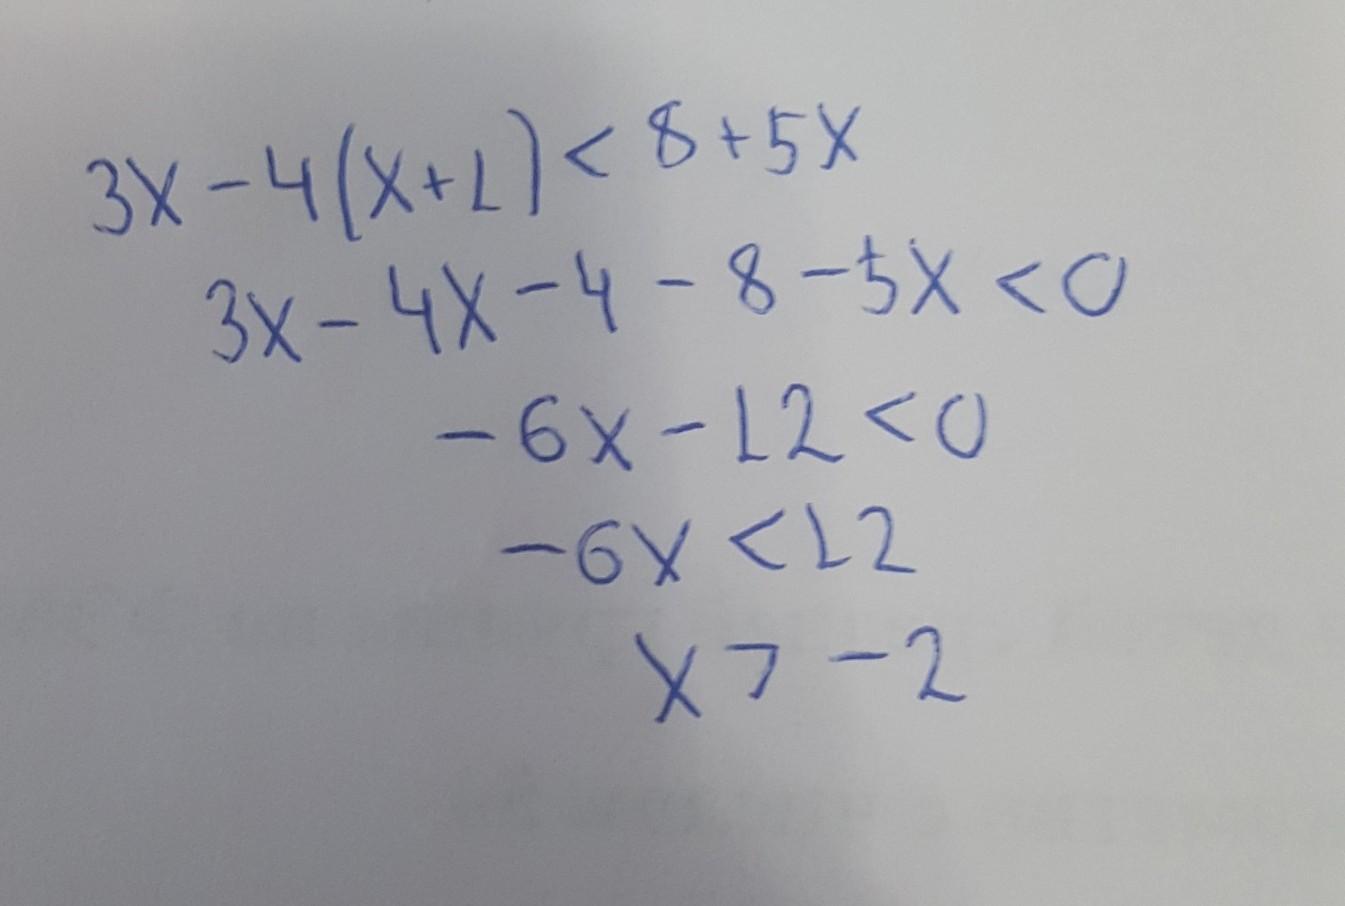 3x - 4(x+1) < 8 + 5x
3x - 4x - 4 - 8 - 5x < 0
- 6x - 12 < 0
- 6x < 12
x > - 2